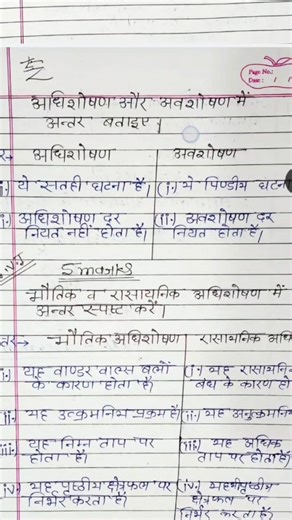 Page No.:
Date: / /
अधिशोषण और अवशोषण में
अन्तर बताइए।
अधिशोषण
अवशोषण
i.) ये सतही घटना है।
(i.) ये पिण्डीय घटना
i.) अधिशोषण दर
नियत नहीं होता है।
(ii.) अवशोषण दर
नियत होता है।
V.V.I
5 marks
भौतिक व रासायनिक अधिशोषण में
अन्तर स्पष्ट करें।
तर→ भौतिक अधिशोषण
रासायनिक अधि
i.) यह वाण्डर वाल्स बलों
के कारण होता है।
(i.) यह रासायनि
बंध के कारण हो
ii.) यह उत्क्रमनिय प्रक्रम है।
(ii.) यह अनुक्रमनि
iii.) यह निम्न ताप पर
होता है।
iii.) यह अधिक
ताप पर होता है।
iv.) यह पृष्ठीय क्षेत्रफल पर
निर्भर करता है।
(iv.)
क्षेत्रफल पर
निर्भर करता है।